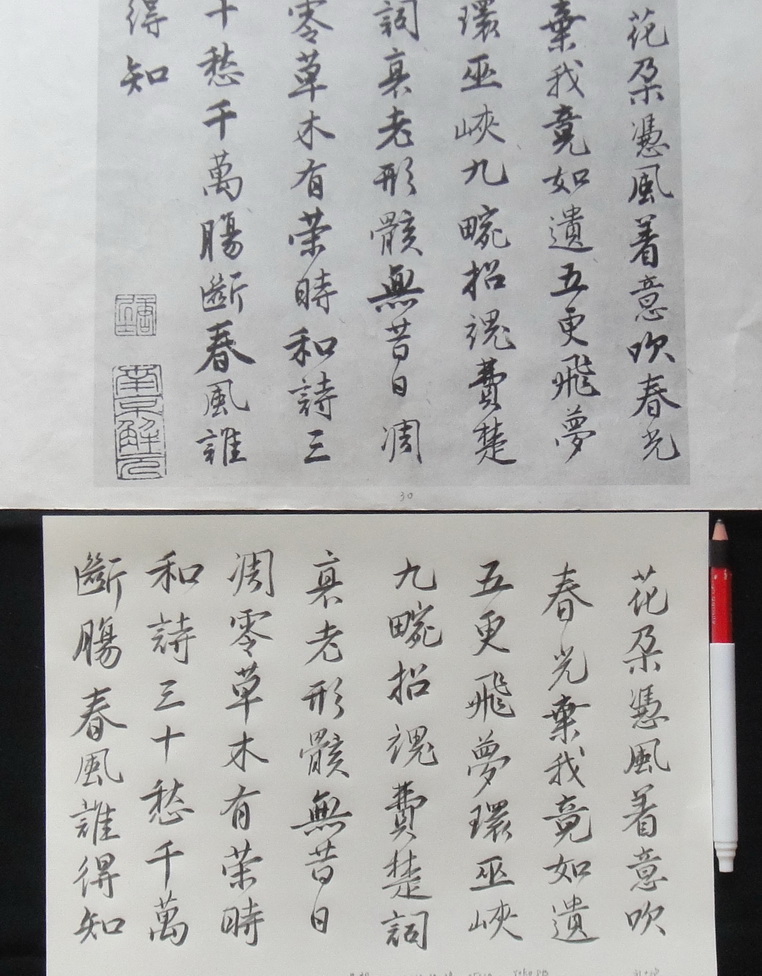 花朵憑風着意吹春光
棄我竟如遺五更飛夢
環巫峽九畹招魂費楚
詞衰老形骸無昔日凋
零草木有荣時和詩三
十愁千萬腸斷春風誰
得知
南京解元
30
花朵憑風着意吹
春光棄我竟如遺
五更飛夢環巫峽
九畹招魂費楚詞
衰老形骸無昔日
凋零草木有荣時
和詩三十愁千萬
斷腸春風誰得知